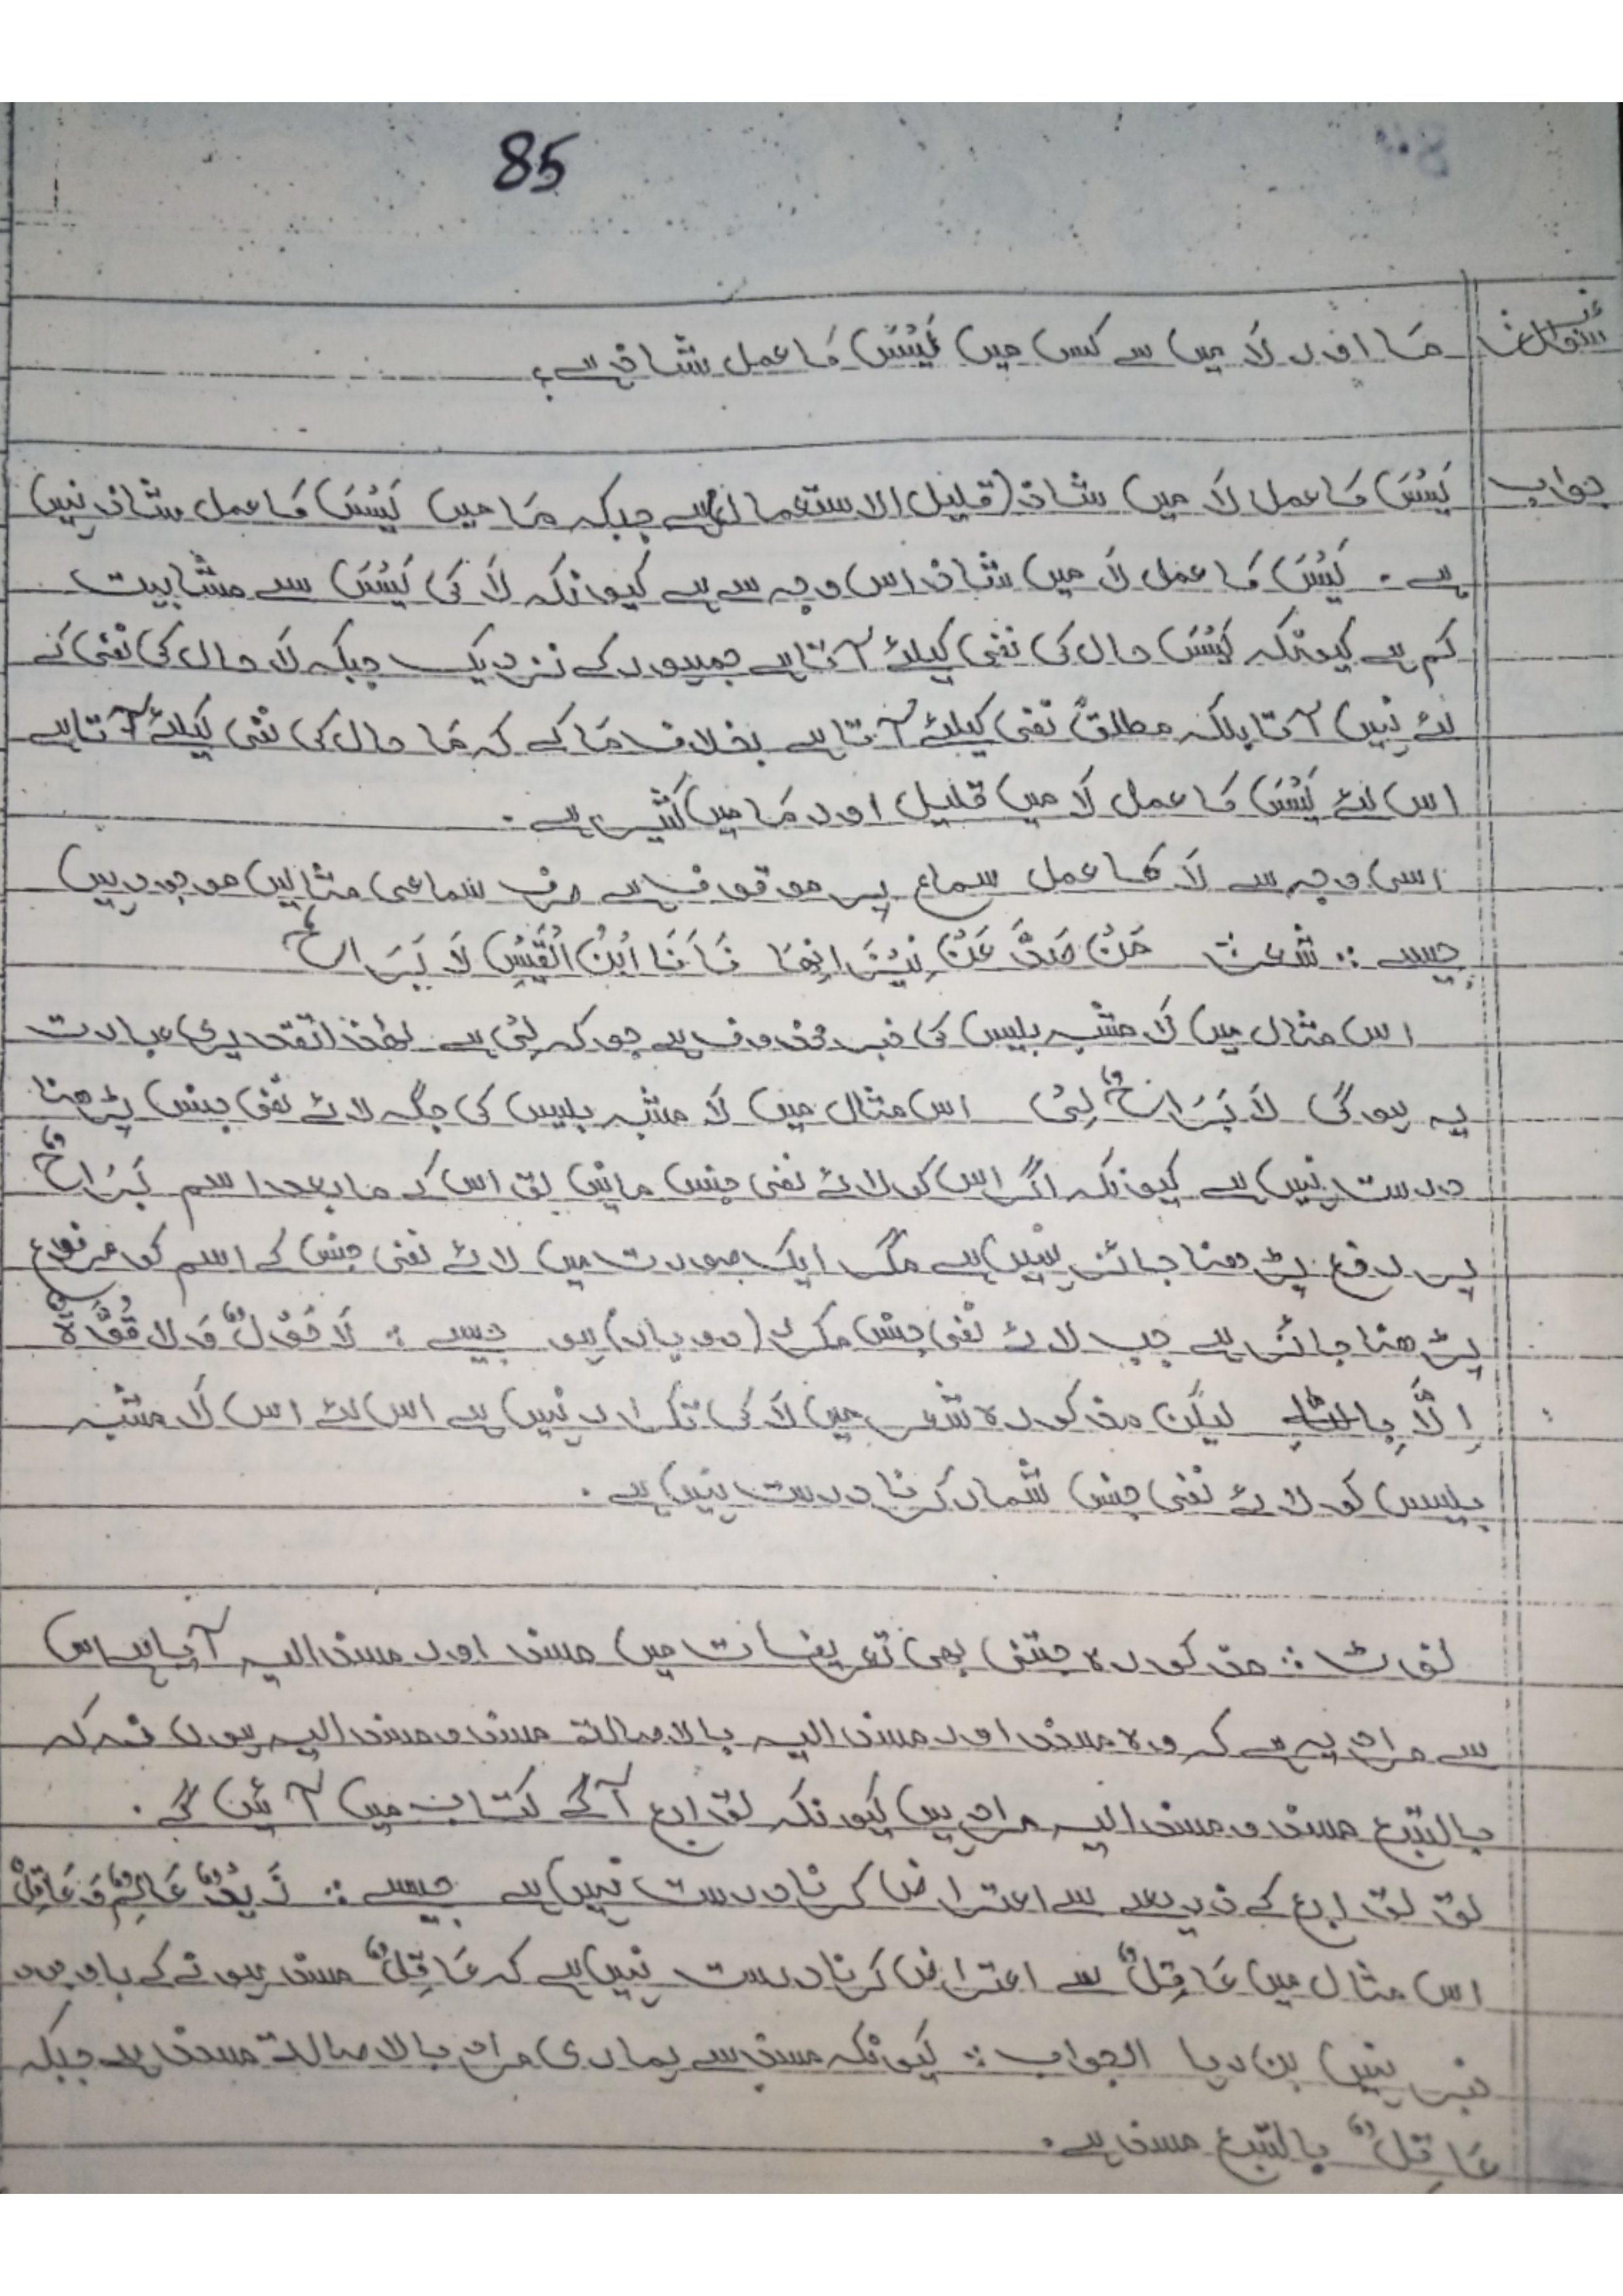 85
سُوال: مَا اور لَا میں سے کس میں لَیْسَ کا عمل شاذ ہے؟
جواب لَیْسَ کا عمل لَا میں شاذ (قلیل الاستعمال) ہے جبکہ مَا میں لَیْسَ کا عمل شاذ نہیں
ہے۔ لَیْسَ کا عمل لَا میں شاذ اس وجہ سے ہے کیونکہ لَا کی لَیْسَ سے مشابہت
کم ہے کیونکہ لَیْسَ حال کی نفی کیلئے آتا ہے جمہور کے نزدیک جبکہ لَا حال کی نفی کے
لئے نہیں آتا بلکہ مطلقً نفی کیلئے آتا ہے بخلاف مَا کے کہ مَا حال کی نفی کیلئے آتا ہے
اس لئے لَیْسَ کا عمل لَا میں قلیل اور مَا میں کثیر ہے۔
اسی وجہ سے لَا کا عمل سماع پر موقوف ہے صرف سماعی مثالیں موجود ہیں
جیسے :: شعر مَنْ صَدَّ عَنْ نِیْرَانِھَا فَاَنَا ابْنُ الْقَیْسِ لَا بَرَاحُ
اس مثال میں لَا مشبہ بلیس کی خبر محذوف ہے جو کہ لِیْ ہے لھٰذا تقدیری عبارت
یہ ہوگی لَا بَرَاحٌ لِیْ اس مثال میں لَا مشبہ بلیس کی جگہ لائے نفی جنس پڑھنا
درست نہیں ہے کیونکہ اگر اس کو لائے نفی جنس مانیں تو اس کے مابعد اسم بَرَاحٌ
پر رفع پڑھنا جائز نہیں ہے مگر ایک صورت میں لائے نفی جنس کے اسم کو مرفوع
پڑھنا جائز ہے جب لائے نفی جنس مکرر (دو بار) ہو جیسے : لَا حَوْلٌ وَلَا قُوَّۃٌ
اِلَّا بِاللّٰہِ لیکن مذکورہ شعر میں لَا کی تکرار نہیں ہے اس لئے اس لَا مشبہ
بلیس کو لائے نفی جنس شمار کرنا درست نہیں ہے۔
نوٹ :: مذکورہ جتنی بھی تعریفات میں مسند اور مسند الیہ آیا ہے اس
سے مراد یہ ہے کہ وہ مسند اور مسند الیہ بالاصالۃ مسند و مسند الیہ ہوں نہ کہ
بالتبع مسند و مسند الیہ مراد ہیں کیونکہ توابع آگے کتاب میں آئیں گے۔
تو توابع کے ذریعے سے اعتراض کرنا درست نہیں ہے جیسے :: زَیْدٌ عَالِمٌ وَعَاقِلٌ
اس مثال میں عَاقِلٌ سے اعتراض کرنا درست نہیں ہے کہ عَاقِلٌ مسند ہونے کے باوجود
خبر نہیں بن رہا الجواب :: کیونکہ مسند سے ہماری مراد بالاصالۃ مسند ہے جبکہ
عَاقِلٌ بالتبع مسند ہے۔